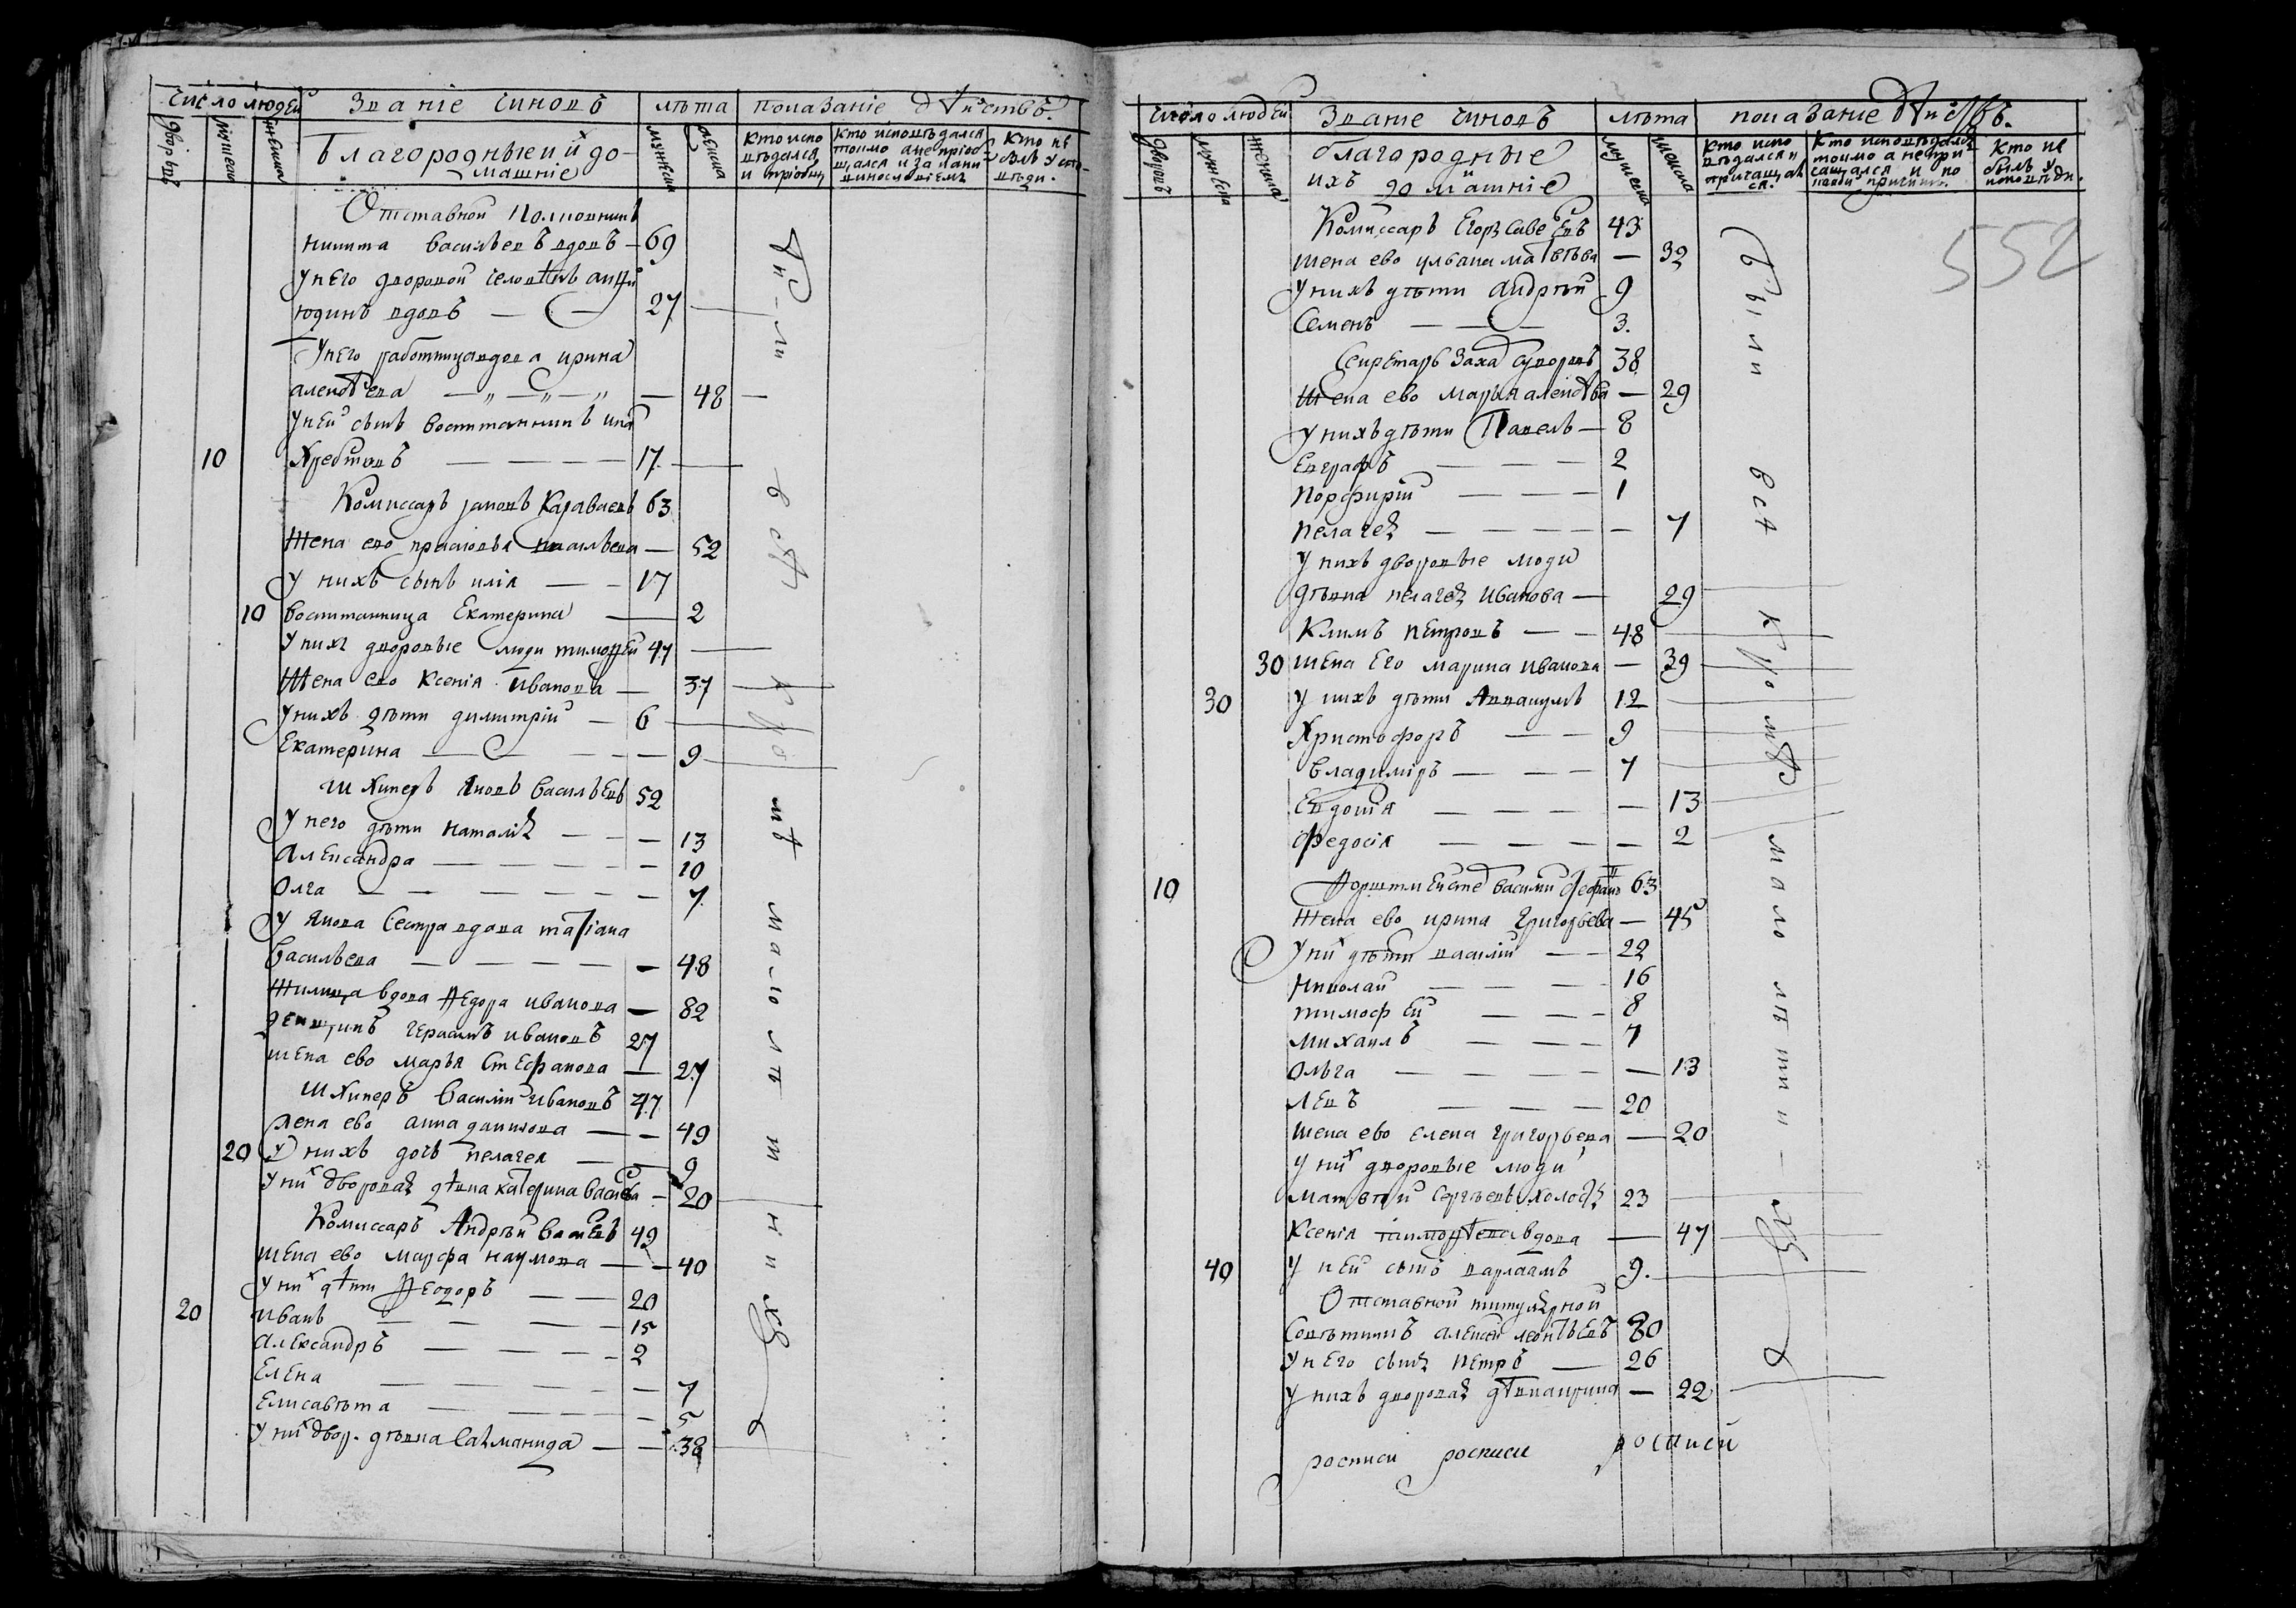 число людей
званіе чиновъ
лѣта
показаніе дѣйствъ.
дворовъ
мужеска
женска
благородныеи й до-
машніе
мужеска
женска
кто испо
вѣдался
и пріобщ
кто исповѣдался
токмо а не пріоб
щался и за каки
виносло віемъ
кто не
былъ у испо-
вѣди.
Отставной полковникъ
никита васильевъ вдовъ — 69
у него дворовой человѣкъ
юдинъ вдовъ — — 27
у него работница вдова ирина
алексѣева — „ — „ — „ — 48 —
у ней сынъ воспитанникъ
10 Хребтовъ — — — — 17
Комиссаръ яковъ Караваевъ 63
жена ево прасковья васильева — 52
у нихъ сынъ иліа — — 17
10 воспитанница Екатерина — 2
у нихъ дворовые люди тимофей 47
жена ево Ксеніа ивановна — 37
у нихъ дѣти димитріи — 6
Екатерина — — — — 9
шхиперъ яковъ васильевъ 52
у него дѣти наталія — — — 13
александра — — — — — 10
Олга — — — — — — 7
у якова сестра вдова татіана
васильева — — — — — 48
жилица вдова ѳедора иванова — 82
денщикъ герасимъ ивановъ 27
жена ево марья стефанова — 27
шхиперъ василіи ивановъ 47
жена ево анна данилова — — 49
20 у нихъ дочь пелагея — — 9
у них дворовая дѣвка катерина васильева — 20
Комиссаръ Андрѣй васильевъ 49
жена ево марфа наумова — — 40
у них дѣти ѳеодоръ — — 20
20 иванъ — — — — 15
александръ — — — — 2
Елена — — — — — — 7
Елисавѣта — — — — — 5
у них двор. дѣвка саламанида — — 38
всѣ
кромѣ
малолѣтнихъ
число людей
званіе чиновъ
лѣта
показаніе дѣйствъ.
дворовъ
мужеска
женска
благородные
ихъ домашніе
мужеска
женска
кто испо
вѣдался и
причащал
ся.
кто исповѣдался
токмо а не при
чащался и по
какои причинѣ.
кто не
былъ у
исповѣди.
552
Комиссаръ Егоръ савельевъ 43
жена ево ульяна матвѣева — 32
у нихъ дѣти андрѣй 9
Семенъ — — — 3.
секретарь Захаръ суворовъ 38
жена ево марья алексѣева — 29
у нихъ дѣти Павелъ — 8
Евграфъ — — — 2
порфиріи — — — 1
пелагея — — — — — 7
у нихъ дворовые люди
дѣвка пелагея иванова — 29
Климъ петровъ — — 48
30 жена его марина иванова — 39
30 у нихъ дѣти Аввакумъ 12
Христофоръ — — 9
владимиръ — — — 7
Евдокіа — — — — 13
федосіа — — — — — 2
10 ѳорштмейсте василіи 63
жена ево ирина григорьева — 45
у них дѣти василіи — — 22
николаи — — — 16
тимофеи — — — 8
михаилъ — — — 7
ольга — — — — — 13
левъ — — — 20
жена ево елена григорьева — 20
у них дворовые люди
матвѣй сергѣевъ холостъ 23
ксеніа тимоѳѣева вдова — 47
40 у ней сынъ варлаамъ 9.
Отставной титулярной
совѣтникъ алексѣи леонтьевъ 80
у него сынъ петръ — 26
у нихъ дворовая дѣвка ирина — 22
Были
всѣ
кромѣ
малолѣтнихъ
росписи росписи росписи